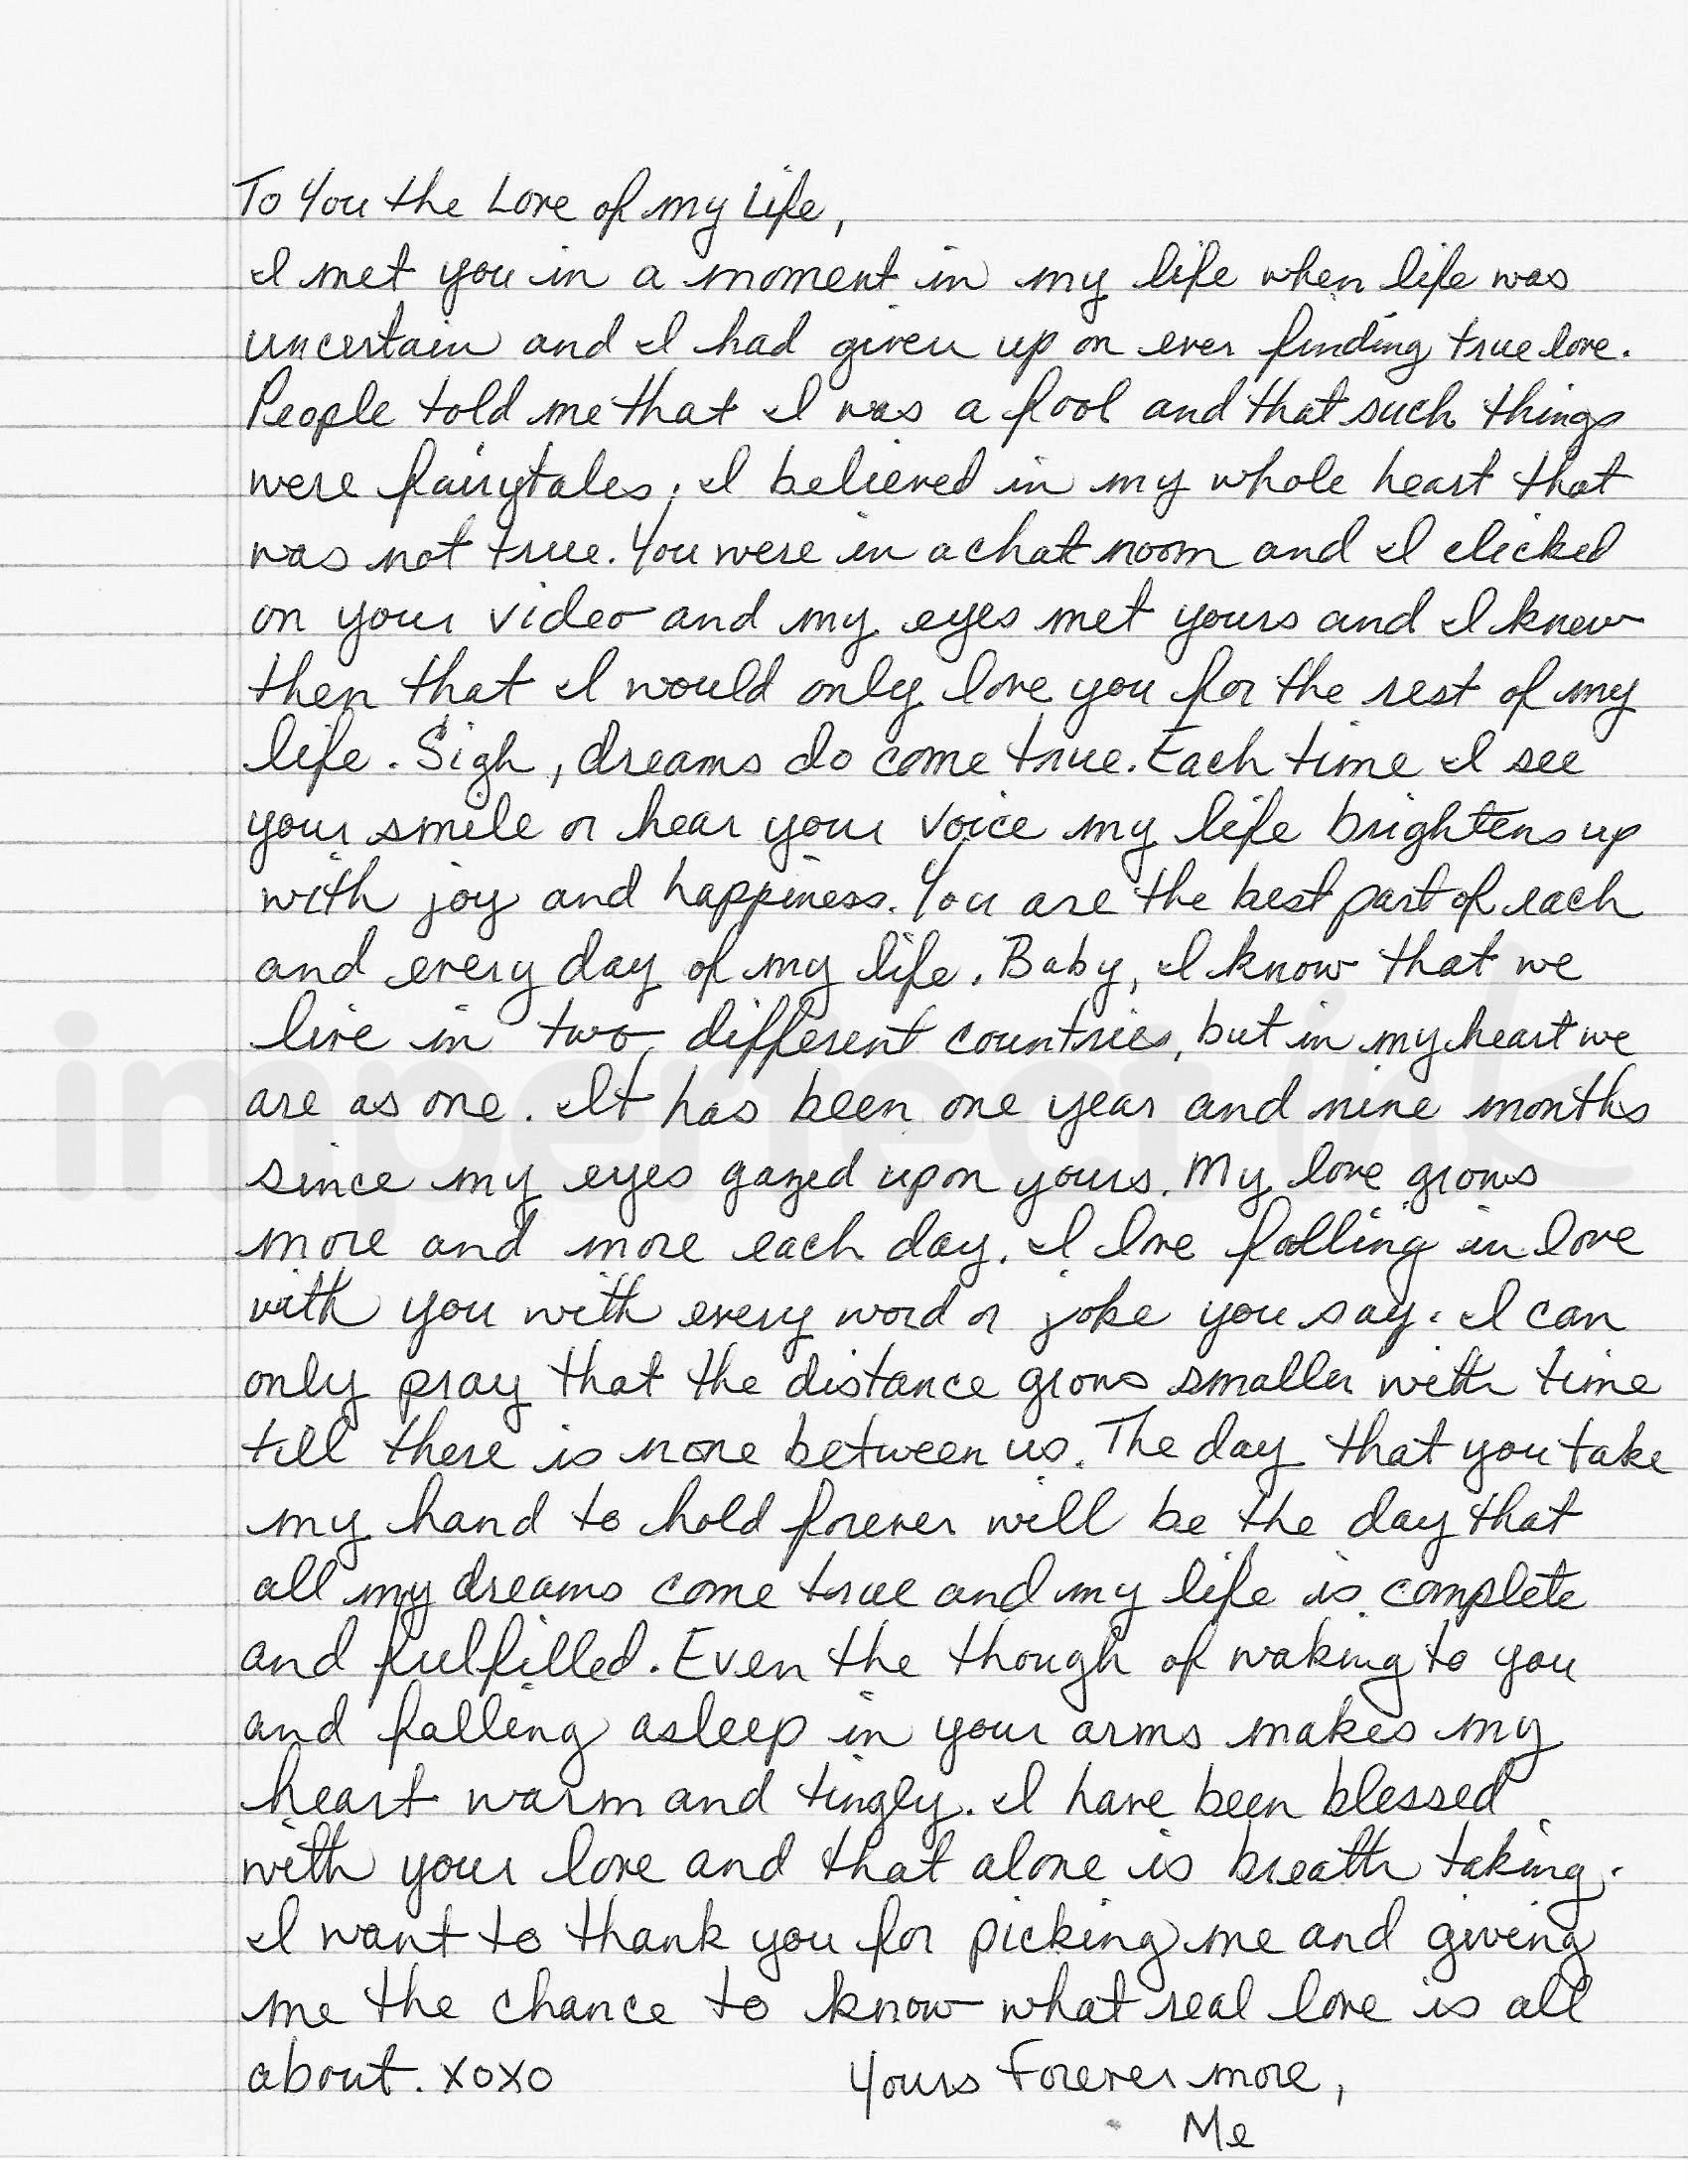 To You the Love of my Life,
I met you in a moment in my life when life was
uncertain and I had given up on ever finding true love.
People told me that I was a fool and that such things
were fairytales; I believed in my whole heart that
was not true. You were in a chat room and I clicked
on your video and my eyes met yours and I knew
then that I would only love you for the rest of my
life. Sigh, dreams do come true. Each time I see
your smile or hear your voice my life brightens up
with joy and happiness. You are the best part of each
and every day of my life. Baby, I know that we
live in two different countries, but in my heart we
are as one. It has been one year and nine months
since my eyes gazed upon yours. My love grows
more and more each day. I love falling in love
with you with every word or joke you say. I can
only pray that the distance grows smaller with time
till there is none between us. The day that you take
my hand to hold forever will be the day that
all my dreams come true and my life is complete
and fulfilled. Even the though of waking to you
and falling asleep in your arms makes my
heart warm and tingly. I have been blessed
with your love and that alone is breath taking.
I want to thank you for picking me and giving
me the chance to know what real love is all
about. xoxo Yours Forever more,
Me
imperfect ink